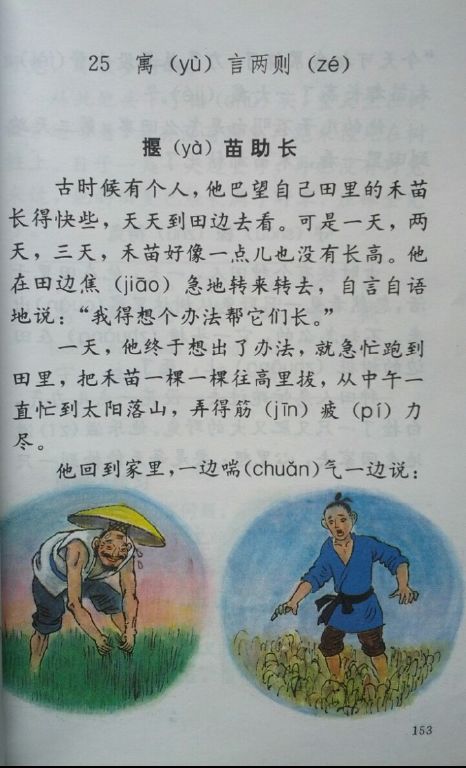 25 寓（yù）言两则（zé）
揠（yà）苗助长
古时候有个人，他巴望自己田里的禾苗
长得快些，天天到田边去看。可是一天，两
天，三天，禾苗好像一点儿也没有长高。他
在田边焦（jiāo）急地转来转去，自言自语
地说：“我得想个办法帮它们长。”
一天，他终于想出了办法，就急忙跑到
田里，把禾苗一棵一棵往高里拔，从中午一
直忙到太阳落山，弄得筋（jīn）疲（pí）力
尽。
他回到家里，一边喘（chuǎn）气一边说：
153